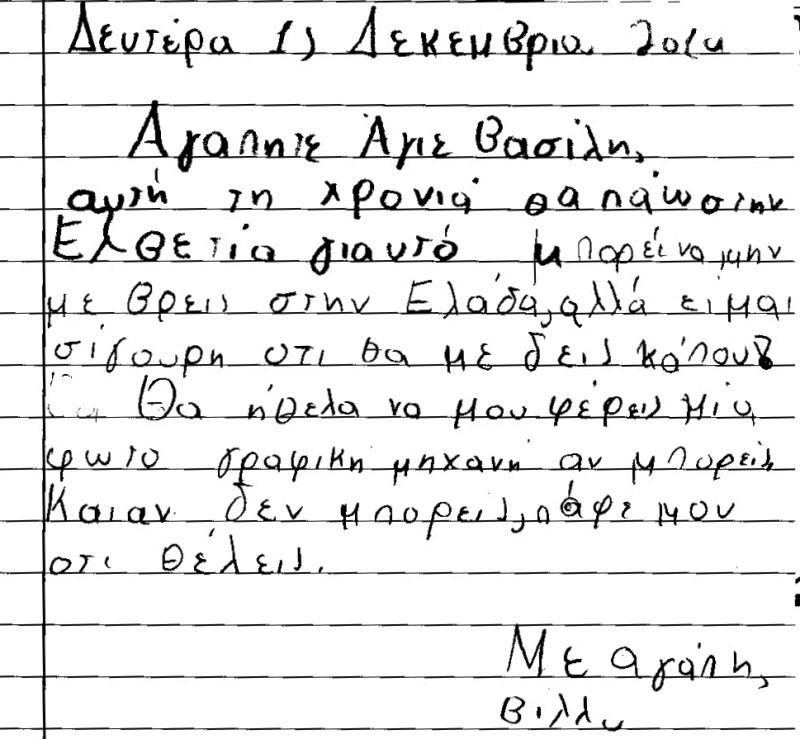 Δευτέρα 1, Δεκεμβρια 2014
Αγαπητέ Άγιε Βασίλη,
αυτή τη χρονιά θα πάω στην
Ελθετία γιαυτό μπορεί να μην
με βρεις στην Ελάδα, αλλά ειμαι
σίγουρη οτι θα με δεις κάπου
Θα ήθελα να μου φέρεις μία
φωτο γραφικη μηχανή αν μπορείς
Και αν δεν μπορεις, πάφε μου
οτι θέλεις.
Με αγάπη,
Βιλλυ